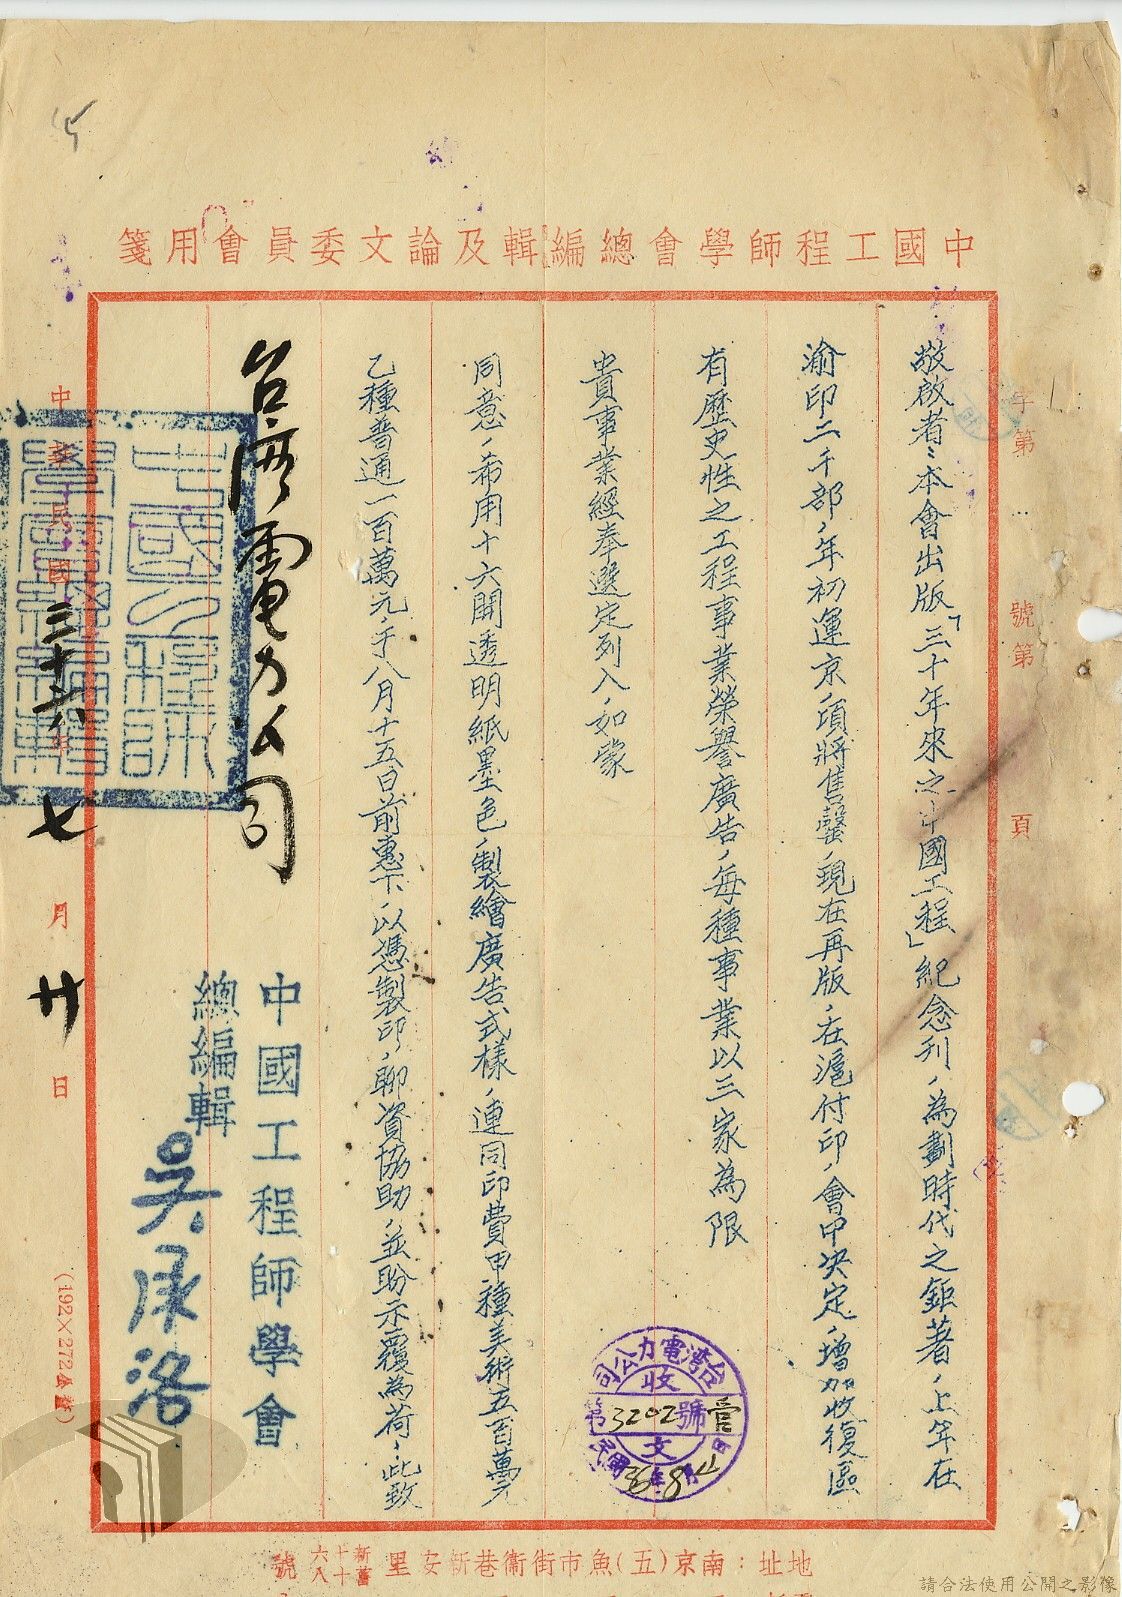 中國工程師學會總編輯及論文委員會用箋
字第 號第 頁
敬啟者、本會出版「三十年來之中國工程」紀念刊，為劃時代之鉅著，上年在
渝印二千部，年初運京，頃將售罄，現在再版，在滬付印，會中決定，增加收復區
有歷史性之工程事業榮譽廣告，每種事業以三家為限
貴事業經奉選定列入，如蒙
同意，希用十六開透明紙墨色，製繪廣告式樣，連同印費甲種美術五百萬元
乙種普通一百萬元，于八月十五日前惠下，以憑製印，聊資協助，並盼示覆為荷，此致
台灣電力公司
中國工程師學會
總編輯 吳承洛
中國工程師學會總編輯
中華民國三十六年七月廿日
(192×272公釐)
台灣電力公司
收文
第3202號
民國36年8月
地址：南京(五)魚市街衛巷新安里新十六舊十八號
請合法使用公開之影像